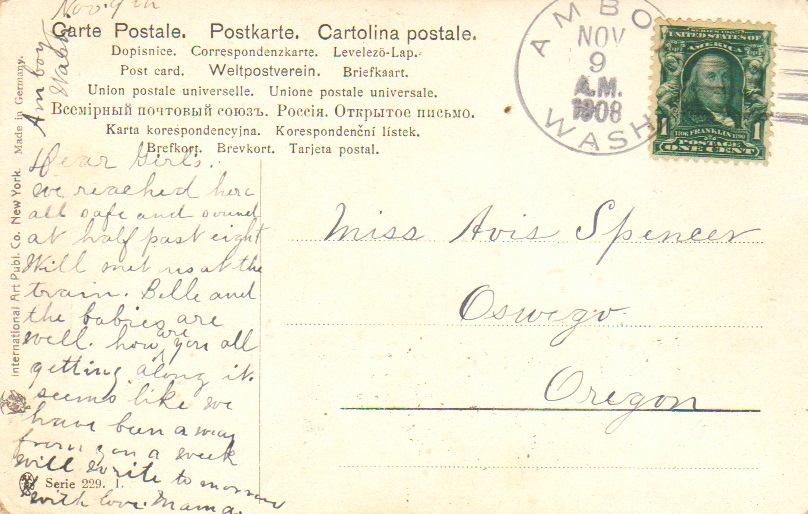 Nov. 9th
Amboy
Wash.
Carte Postale. Postkarte. Cartolina postale.
Dopisnice. Correspondenzkarte. Levelező-Lap.
Post card. Weltpostverein. Briefkaart.
Union postale universelle. Unione postale universale.
Всемірный почтовый союзъ. Россія. Открытое письмо.
Karta korespondencyjna. Korespondenční lístek.
Brefkort. Brevkort. Tarjeta postal.
AMBOY
NOV
9
A.M.
1908
WASH.
SERIES 1902
UNITED STATES OF
AMERICA
1706 FRANKLIN 1790
1 1
POSTAGE
ONE CENT
Made in Germany.
International Art Publ. Co. New York.
Dear Girls.
we reached here
all safe and sound
at half past eight
Will met us at the
train. Belle and
the babies are
well. how are you all
getting along it
seems like we
have been away
from you a week
will write to morrow
with love. Mama.
Serie 229. 1.
Miss Avis Spencer
Oswego
Oregon